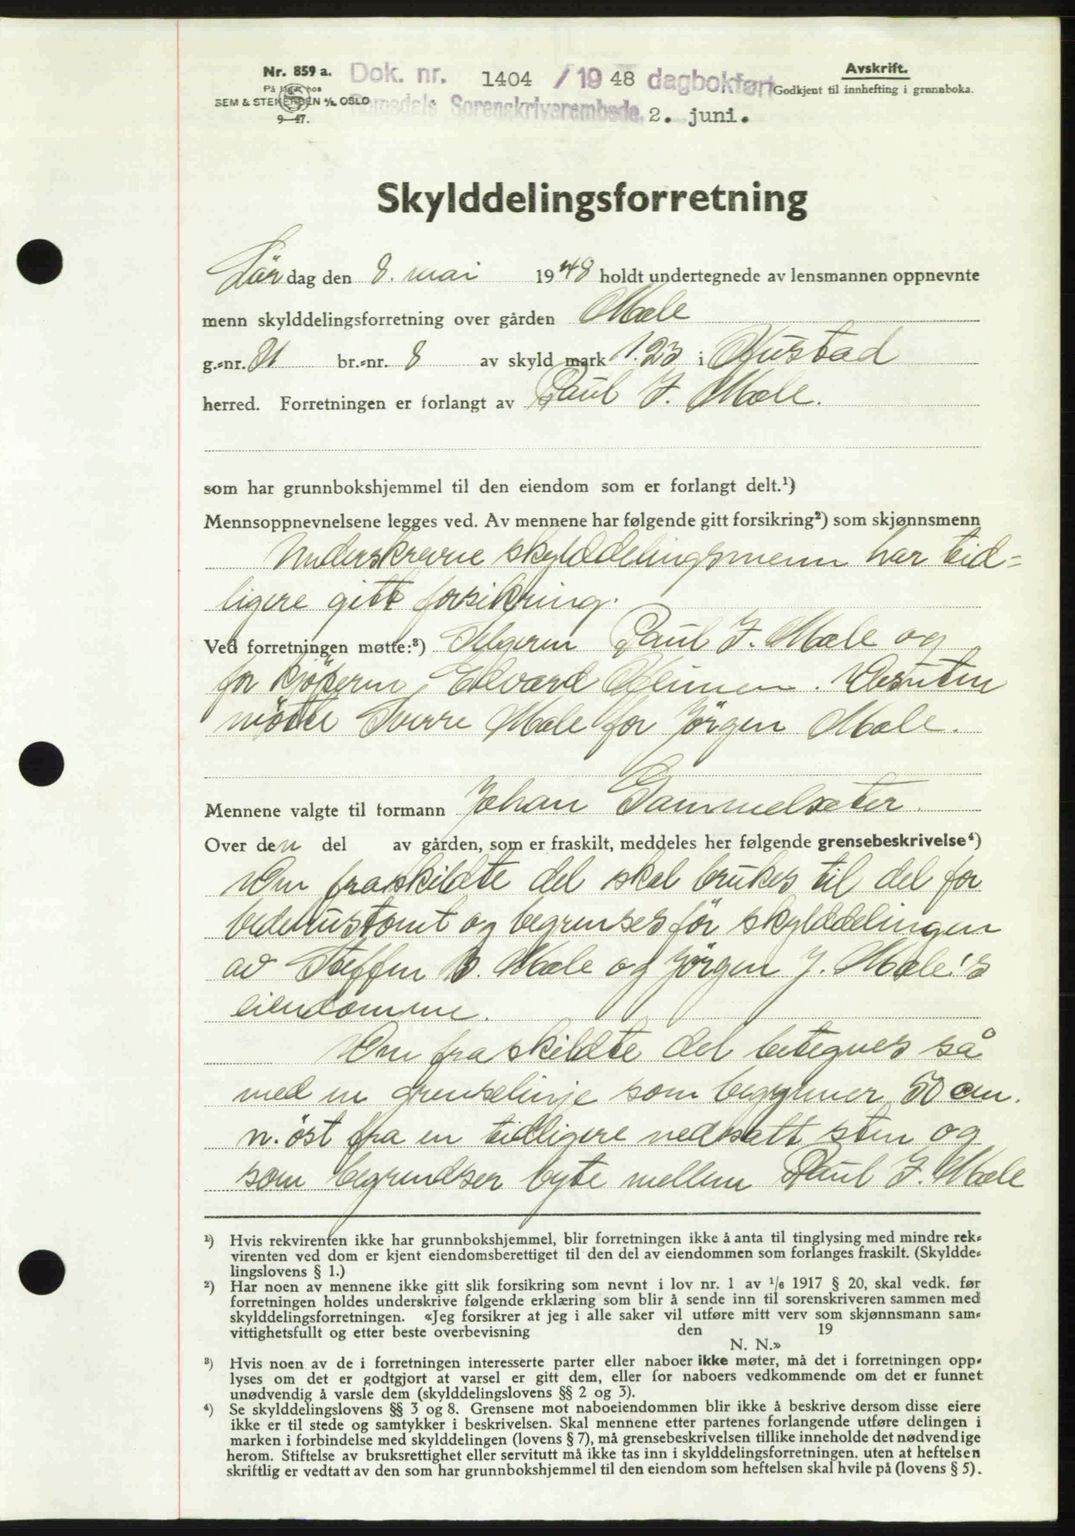 Nr. 859 a.
På lager hos
SEM & STENERSEN A/S, OSLO
9—47.
Dok. nr. 1404 / 19 48 dagbokført
Romsdals Sorenskriverembede. 2. juni.
Avskrift.
Godkjent til innhefting i grunnboka.
Skylddelingsforretning
Lørdag den 8. mai 1948 holdt undertegnede av lensmannen oppnevnte
menn skylddelingsforretning over gården Mæle
g.-nr. 81 br.-nr. 8 av skyld mark 1.23 i Hustad
herred. Forretningen er forlangt av Paul J. Mæle.
som har grunnbokshjemmel til den eiendom som er forlangt delt.¹)
Mennsoppnevnelsene legges ved. Av mennene har følgende gitt forsikring²) som skjønnsmenn
Underskrevne skylddelingsmenn har tid=
ligere gitt forsikring.
Ved forretningen møtte:³) Selgeren Paul J. Mæle og
for kjøperen, Edvard Heimen. Desuten
møtte Sverre Mæle for Jørgen Mæle.
Mennene valgte til formann Johan Gammelsæter.
Over den del av gården, som er fraskilt, meddeles her følgende grensebeskrivelse⁴)
Den fraskildte del skal brukes til del for
bedehustomt og begrenses før skylddelingen
av Steffen B. Mæle og Jørgen J. Mæle's
eiendomme.
Den fraskildte del betegnes så
med en grenselinje som begynner 50 cm.
n. øst fra en tidligere nedsatt sten og
som begrendser byte mellem Paul J. Mæle
¹) Hvis rekvirenten ikke har grunnbokshjemmel, blir forretningen ikke å anta til tinglysing med mindre rek-
virenten ved dom er kjent eiendomsberettiget til den del av eiendommen som forlanges fraskilt. (Skyldde-
lingslovens § 1.)
²) Har noen av mennene ikke gitt slik forsikring som nevnt i lov nr. 1 av 1/6 1917 § 20, skal vedk. før
forretningen holdes underskrive følgende erklæring som blir å sende inn til sorenskriveren sammen med
skylddelingsforretningen. «Jeg forsikrer at jeg i alle saker vil utføre mitt verv som skjønnsmann sam-
vittighetsfullt og etter beste overbevisning den 19
N. N.»
³) Hvis noen av de i forretningen interesserte parter eller naboer ikke møter, må det i forretningen opp-
lyses om det er godtgjort at varsel er gitt dem, eller for naboers vedkommende om det er funnet
unødvendig å varsle dem (skylddelingslovens §§ 2 og 3).
⁴) Se skylddelingslovens §§ 3 og 8. Grensene mot naboeiendommen blir ikke å beskrive dersom disse eiere
ikke er til stede og samtykker i beskrivelsen. Skal mennene etter partenes forlangende utføre delingen i
marken i forbindelse med skylddelingen (lovens § 7), må grensebeskrivelsen tillike inneholde det nødvendige
herom. Stiftelse av bruksrettighet eller servitutt må ikke tas inn i skylddelingsforretningen, uten at heftelsen
skriftlig er vedtatt av den som har grunnbokshjemmel til den eiendom som heftelsen skal hvile på (lovens § 5).